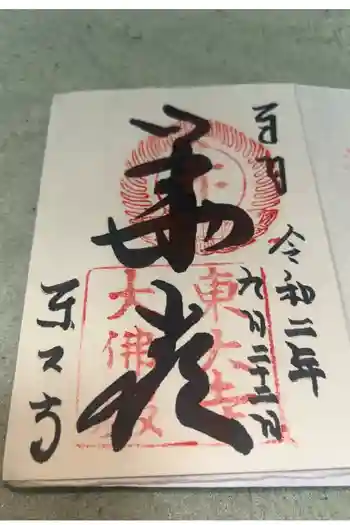 奉拝
令和二年
九月二十二日
華厳
東大寺
大佛殿
東大寺